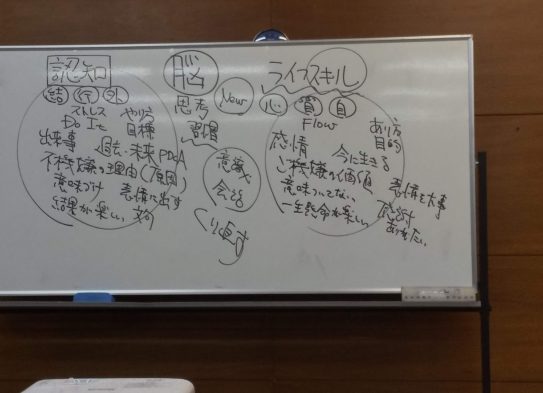 認知
結 行 外
ストレス やり方
Do It 目標
出来事 過去・未来 PDCA
不機嫌の理由(原因)
意味づけ 表情に出す
結果が楽しい
脳
思考 Now
習慣
意識
会話
くり返す
ライフスキル
心 質 自
Flow あり方
感情 目的
今に生きる
ご機嫌の価値
表情を大事
意味ついてない
一生懸命が楽しい 感謝
ありがたい